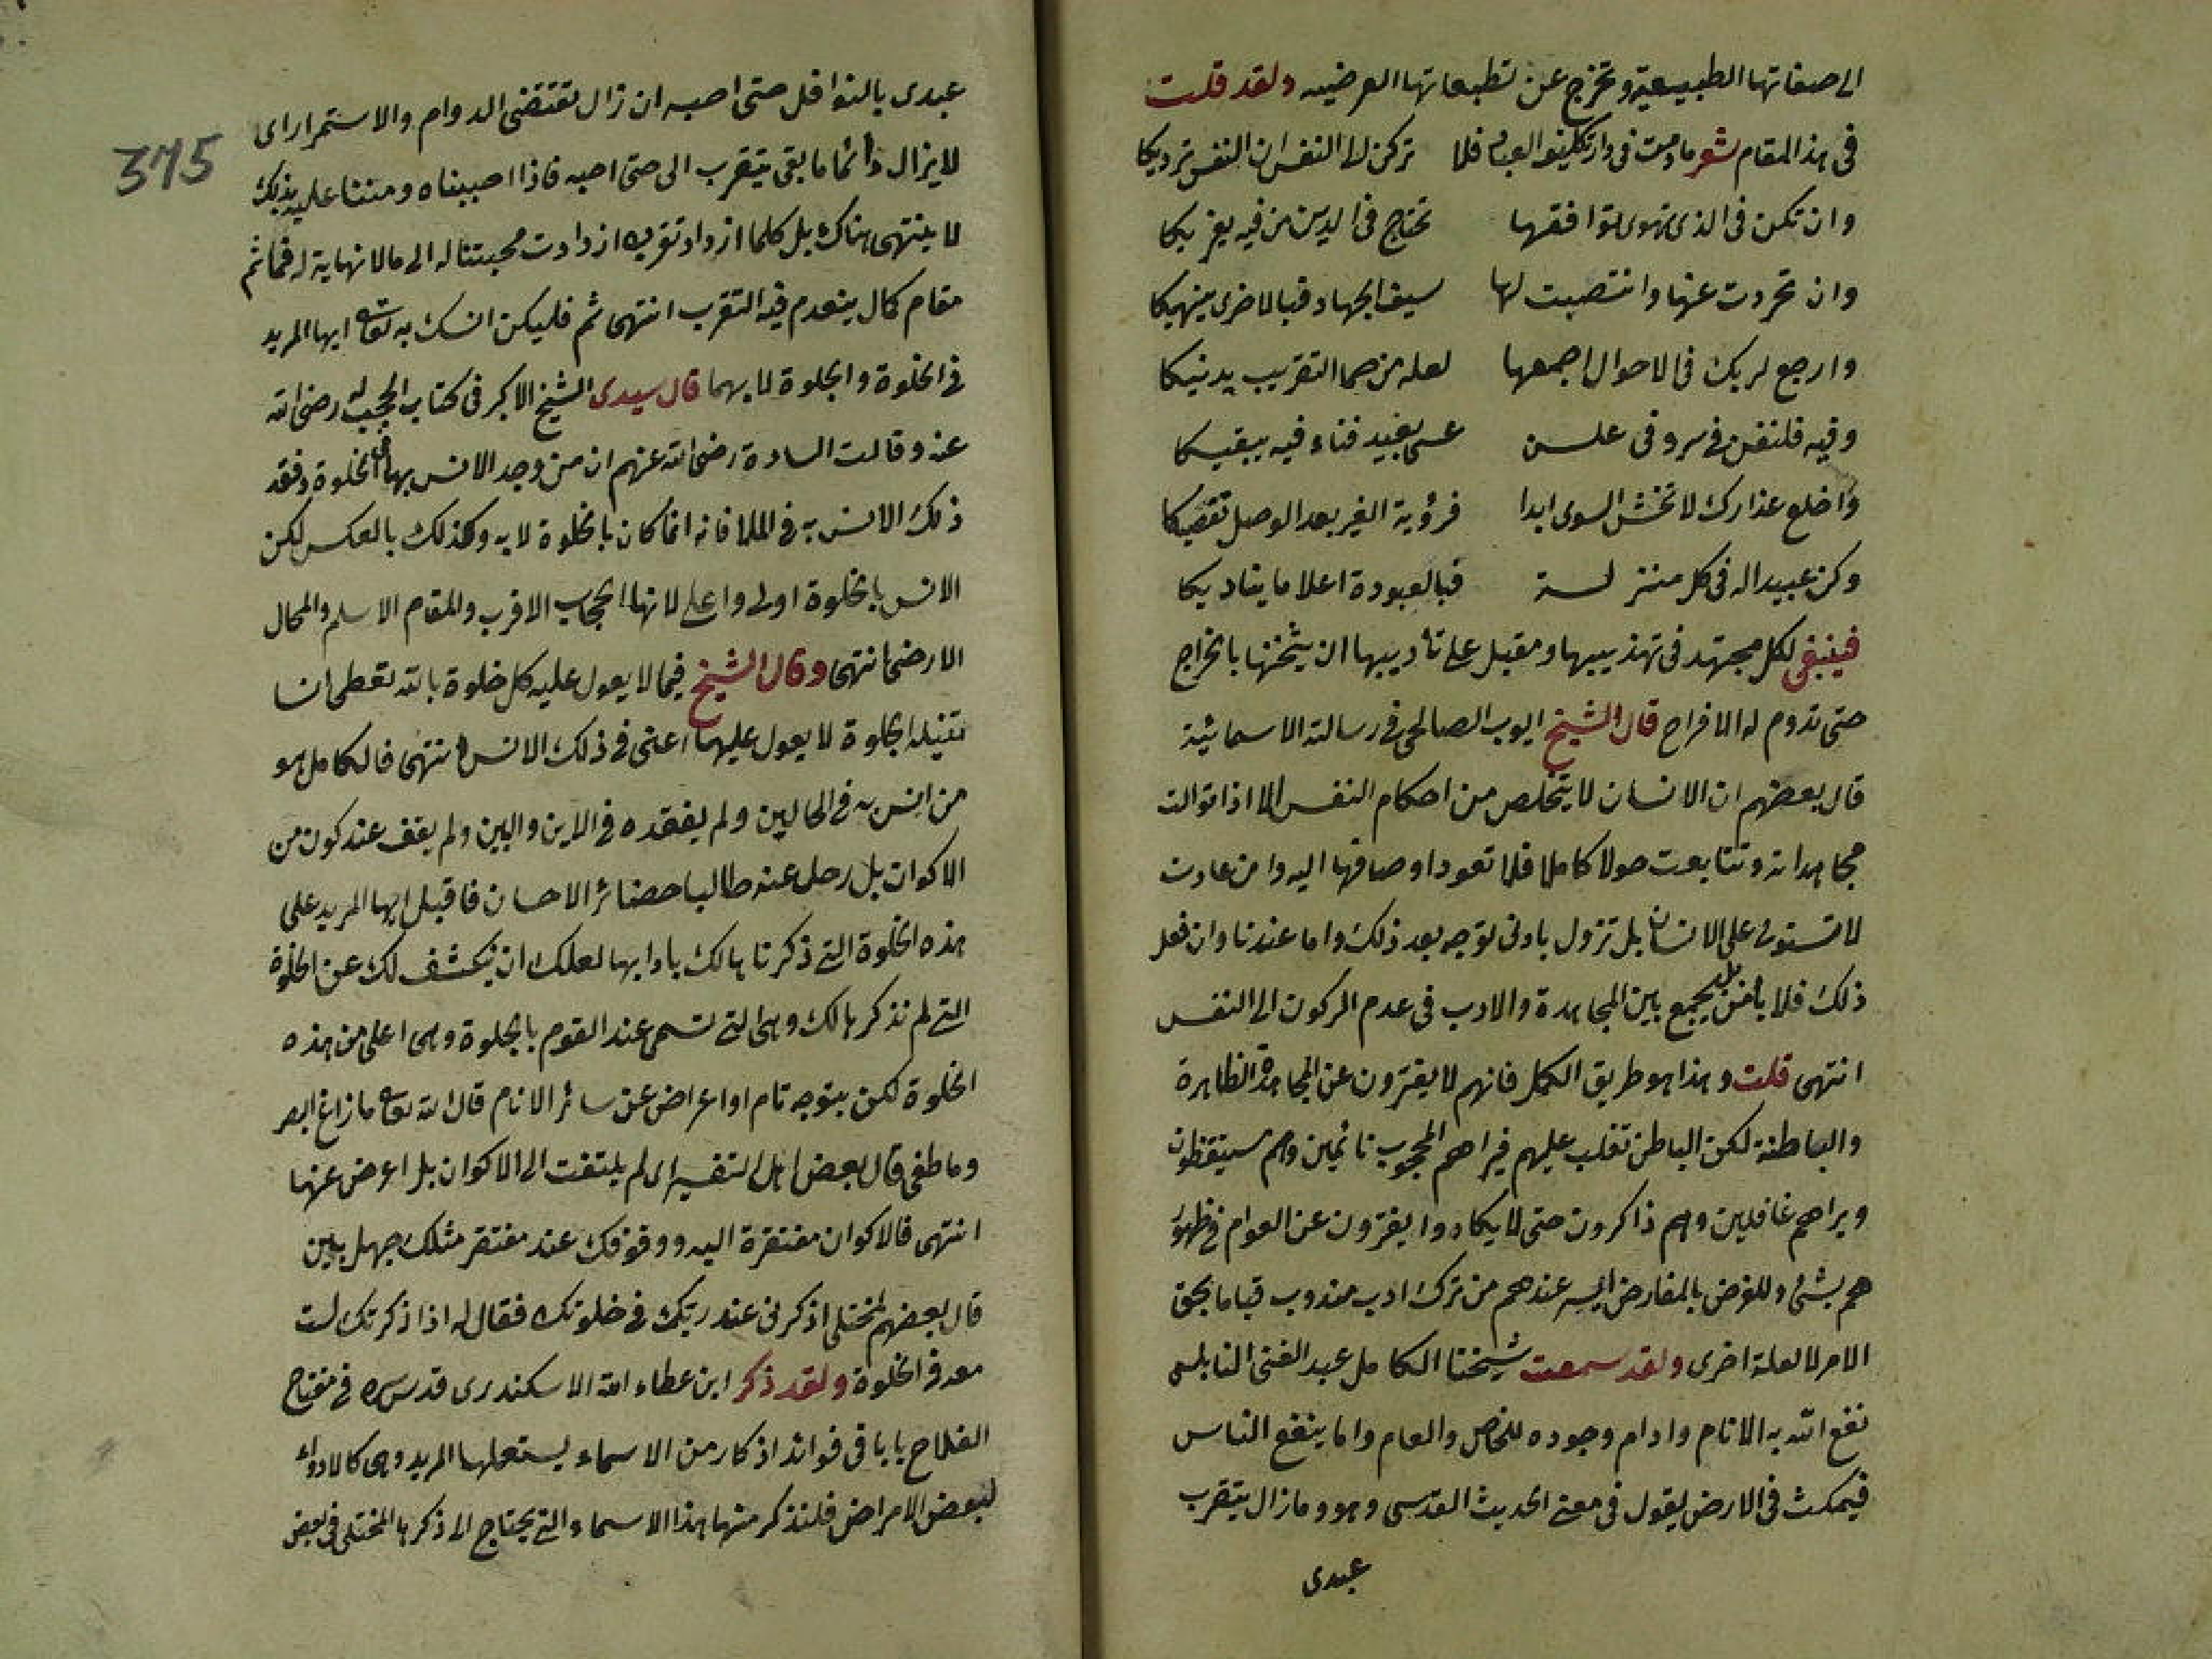 الى صفاتها الطبيعية وتخرج عن تطبعاتها العرضيه ولقد قلت
فى هذا المقام شعر مادمت فى دار تكليف العباد فلا تركن الى النفس ان النفس ترديكا
وان تكن فى الذى تهوى توافقها تحتاج فى الدين من فيه يغزيكا
وان تجردت عنها وانتصبت لها سيف الجهاد فبالاخرى ينهيكا
وارجع لربك فى الاحوال اجمعها لعله من حما التقريب يدنيكا
وفيه فلتفن فى سر وفى علن عسى بعيد فناء فيه يبقيكا
واخلع عذارك لا تخش السوى ابدا فرؤية الغير بعد الوصل تقصيكا
وكن عبيدا له فى كل منزلة فبالعبودة اعلا ما يناديكا
فينبغى لكل مجتهد فى تهذيبها ومقبل على تاديبها ان يثخنها بالجراح
حتى تدوم له الافراح قال الشيخ ايوب الصالحى فى رسالته الاسمائية
قال بعضهم ان الانسان لا يتخلص من احكام النفس الا اذا توالت
مجاهداته وتتابعت حولا كاملا فلا تعود اوصافها اليه وان عادت
لا تستولى على الانسان بل تزول بادنى توجه بعد ذلك واما عندنا وان فعل
ذلك فلا يأمن بل يجمع بين المجاهدة والادب فى عدم الركون الى النفس
انتهى قلت وهذا هو طريق الكمل فانهم لا يفترون عن المجاهدة الظاهرة
والباطنة لكن الباطن تغلب عليهم فيراهم المحجوب نائمين وهم مستيقظون
ويراهم غافلين وهم ذاكرون حتى لا يكادوا يفترون عن العوام فى ظهور
هم بشئ وللقرض بالمقارض ايسر عندهم من ترك ادب مندوب قياما بحق
الامر لا لعلة اخرى ولقد سمعت شيخنا الكامل عبد الغنى النابلسى
نفع الله به الانام وادام وجوده للخاص والعام واما ينفع الناس
فيمكث فى الارض يقول فى معنى الحديث القدسى وهو وما زال يتقرب
عبدى
375
عبدى بالنوافل حتى احبه ان زال تقتضى الدوام والاستمرار اى
لا يزال دائما ما بقى يتقرب الى حتى احبه فاذا احببناه ومننا عليه بذلك
لا ينتهى هناك بل كلما ازداد تقربه ازدادت محبتنا له الى ما لا نهاية له فما ثم
مقام كمال ينعدم فيه التقرب انتهى ثم فليكن انسك به تعالى ايها المريد
فى الخلوة والجلوة لا بهما قال سيدى الشيخ الاكبر فى كتاب الحجب له رضى الله
عنه وقالت السادة رضى الله عنهم ان من وجد الانس بها فى الخلوة وفقد
ذلك الانس به فى الملا فانه انما كان بالخلوة لا به وكذلك بالعكس لكن
الانس بالخلوة اولى واعلى لانها الحجاب الاقرب والمقام الاسلم والمحال
الارضى انتهى وقال الشيخ فيما لا يعول عليه كل خلوة بالله تعطى انسا
تفنيه الجلوة لا يعول عليها اعنى فى ذلك الانس انتهى فالكامل هو
من انس به فى الحالين ولم يفقده فى الاين والبين ولم يقف عند كون من
الاكوان بل رحل عنه طالبا حضائر الاحسان فاقبل ايها المريد على
هذه الخلوة التى ذكرناها لك بادابها لعلك ان يكشف لك عن الخلوة
التى لم نذكرها لك وهى التى تسمى عند القوم بالجلوة وهى اعلى من هذه
الخلوة لكن بتوجه تام واعراض عن سائر الانام قال الله تعالى ما زاغ البصر
وما طغى قال بعض اهل التفسير اى لم يلتفت الى الاكوان بل اعرض عنها
انتهى فالاكوان مفتقرة اليه ووقوفك عند مفتقر مثلك جهل بين
قال بعضهم لمختلى اذكرنى عند ربك فى خلوتك فقال له اذا ذكرتك لست
معه فى الخلوة ولقد ذكر ابن عطاء الله الاسكندرى قدس سره فى مفتاح
الفلاح بابا فى فوائد اذكار من الاسماء يستعملها المريد وهى كالادواء
لبعض الامراض فلنذكر منها هذا الاسماء التى يحتاج الى ذكرها المختلى فى بعض